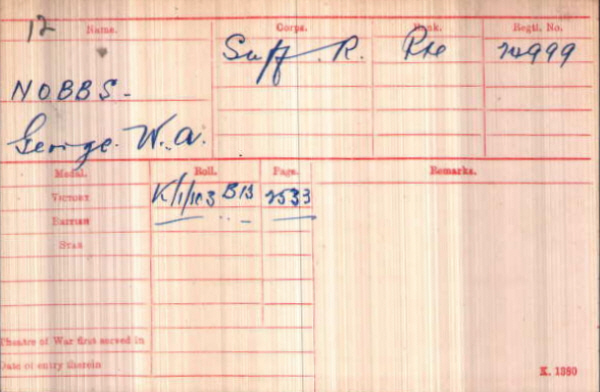 12 Name. Corps. Rank. Regtl. No.
Suff. R. Pte 24999
NOBBS-
George. W. A.
Medal. Roll. Page. Remarks.
VICTORY K/1/103 B13 2533
BRITISH
STAR
Theatre of War first served in
Date of entry therein
K. 1380